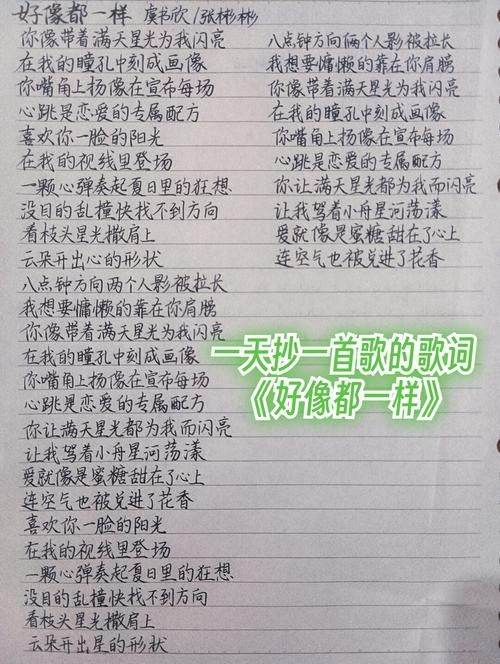 好像都一样 虞书欣/张彬彬
你像带着满天星光为我闪亮
在我的瞳孔中刻成画像
你嘴角上扬像在宣布每场
心跳是恋爱的专属配方
喜欢你一脸的阳光
在我的视线里登场
一颗心弹奏起夏日里的狂想
没目的乱撞快找不到方向
看枝头星光撒肩上
云朵开出心的形状
八点钟方向两个人影被拉长
我想要慵懒的靠在你肩膀
你像带着满天星光为我闪亮
在我的瞳孔中刻成画像
你嘴角上扬像在宣布每场
心跳是恋爱的专属配方
你让满天星光都为我而闪亮
让我驾着小舟星河荡漾
爱就像是蜜糖甜在心上
连空气也被兑进了花香
喜欢你一脸的阳光
在我的视线里登场
一颗心弹奏起夏日里的狂想
没目的乱撞快找不到方向
看枝头星光撒肩上
云朵开出星的形状
八点钟方向俩个人影被拉长
我想要慵懒的靠在你肩膀
你像带着满天星光为我闪亮
在我的瞳孔中刻成画像
你嘴角上扬像在宣布每场
心跳是恋爱的专属配方
你让满天星光都为我而闪亮
让我驾着小舟星河荡漾
爱就像是蜜糖甜在了心上
连空气也被兑进了花香
一天抄一首歌的歌词
《好像都一样》